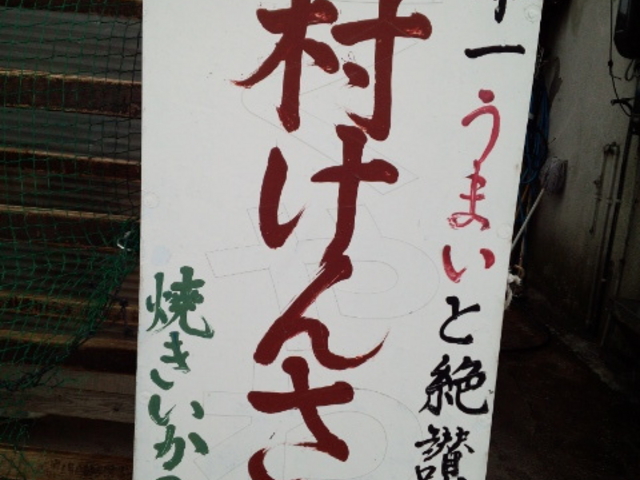 一うまいと絶讃
村けんさ
焼きいか